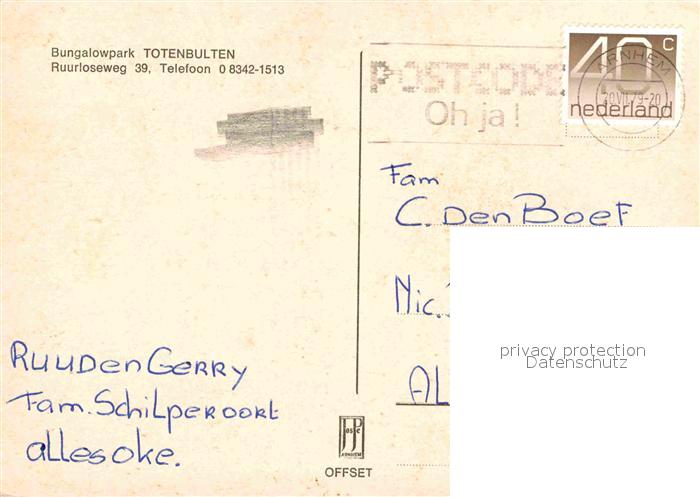 Bungalowpark TOTENBULTEN
Ruurloseweg 39, Telefoon 0 8342-1513
POSTCODE
Oh ja !
40 c
nederland
ARNHEM
20.VII.79-20
Fam
C. Den Boef
Nic.
AL
privacy protection
Datenschutz
Ruud en Gerry
Fam. Schilperoort
alles oke.
JosPe
ARNHEM
OFFSET